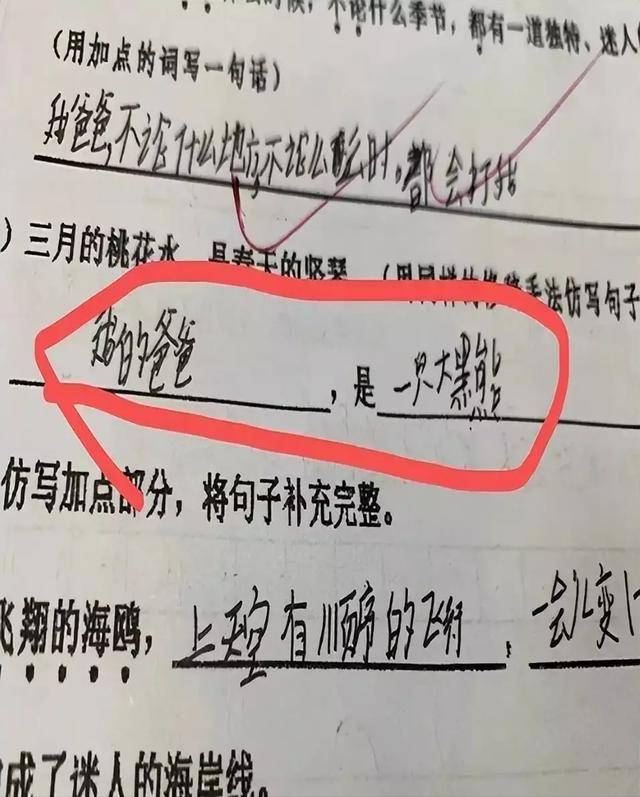 时候，不论什么季节，都有一道独特、迷人
（用加点的词写一句话）
我爸爸，不论什么地方，不论么时，都会打我
）三月的桃花水，是春天的竖琴。（用同样的修辞手法仿写句子
我的爸爸，是一只大黑熊
仿写加点部分，将句子补充完整。
飞翔的海鸥，上天空有顺序的飞行，一会儿变
成了迷人的海岸线。